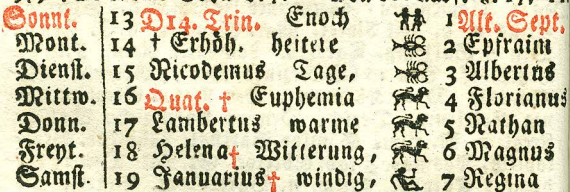 Sonnt. 13 D14. Trin. Enoch 1 Alt. Sept.
Mont. 14 † Erhöh. heitere 2 Epfraim
Dienst. 15 Nicodemus Tage, 3 Albertus
Mittw. 16 Quat. † Euphemia 4 Florianus
Donn. 17 Lambertus warme 5 Nathan
Freyt. 18 Helena† Witterung, 6 Magnus
Samst. 19 Januarius† windig, 7 Regina